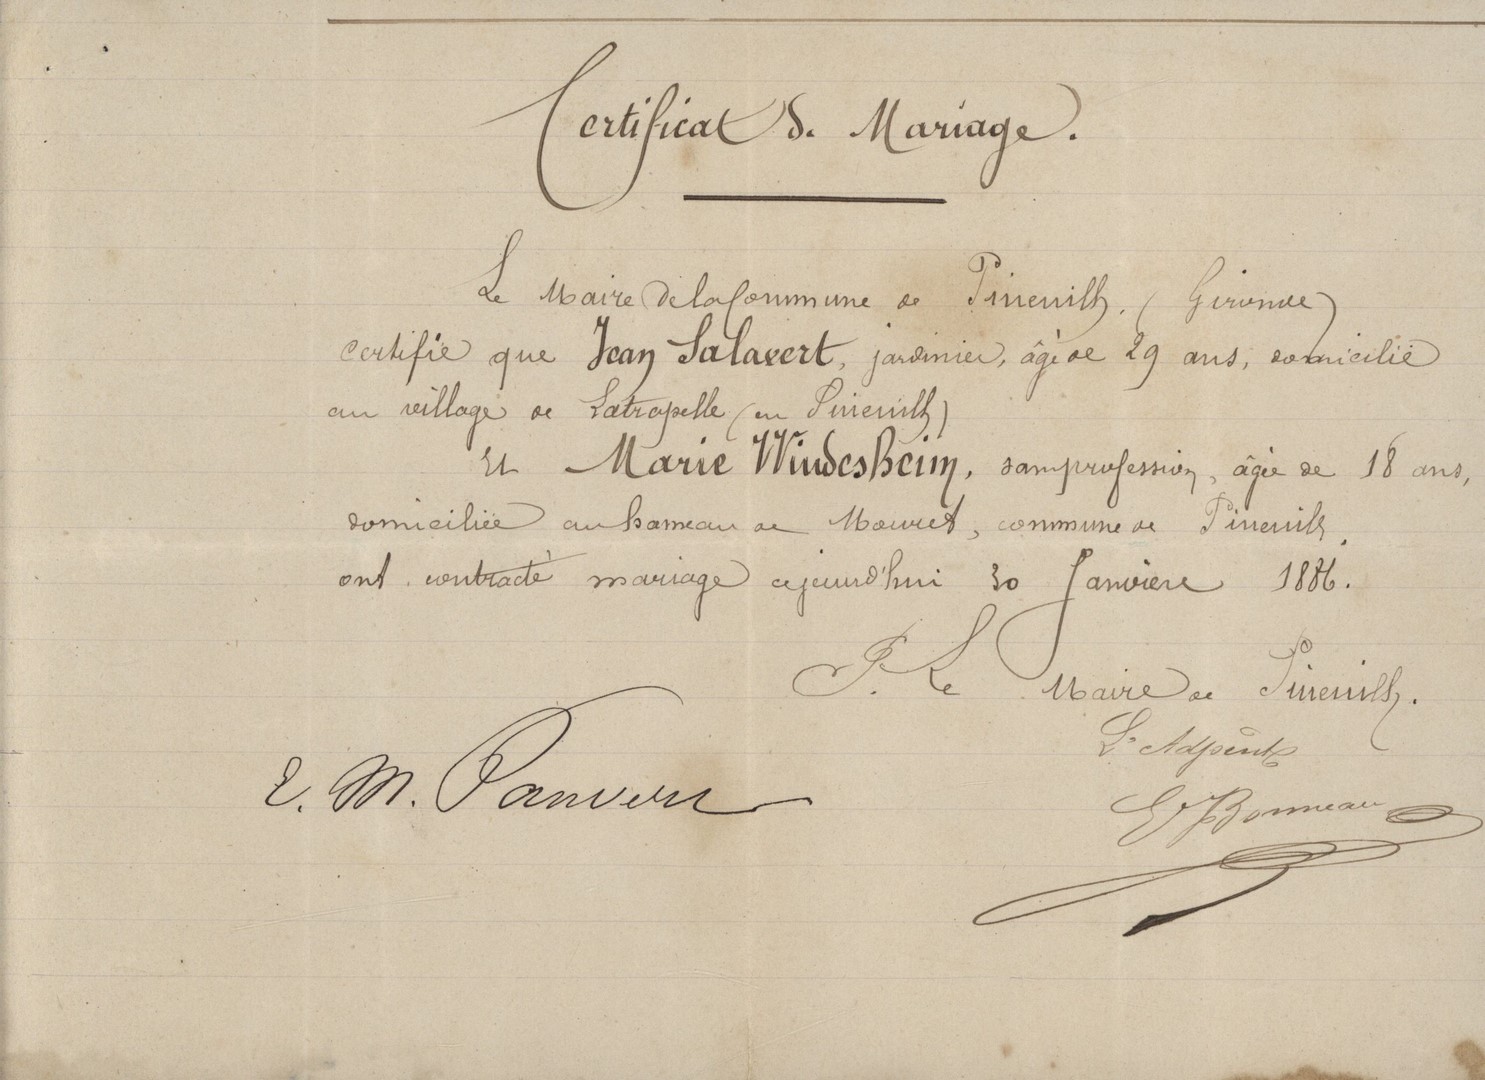 Certificat de Mariage.
Le Maire de la Commune de Pineuilh, (Gironde)
certifie que Jean Salavert, jardinier, âgé de 29 ans, domicilié
au village de Latrapelle (en Pineuilh)
Et Marie Windesheim, sans profession, âgée de 18 ans,
domiciliée au hameau de Mouret, commune de Pineuilh,
ont contracté mariage aujourd'hui 30 Janvière 1886.
P. Le Maire de Pineuilh.
L'Adjoint
E. M. Panvert
Bonneau